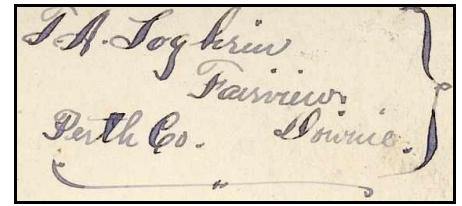 T. A. Loghrin
Fairview.
Perth Co. Downie.